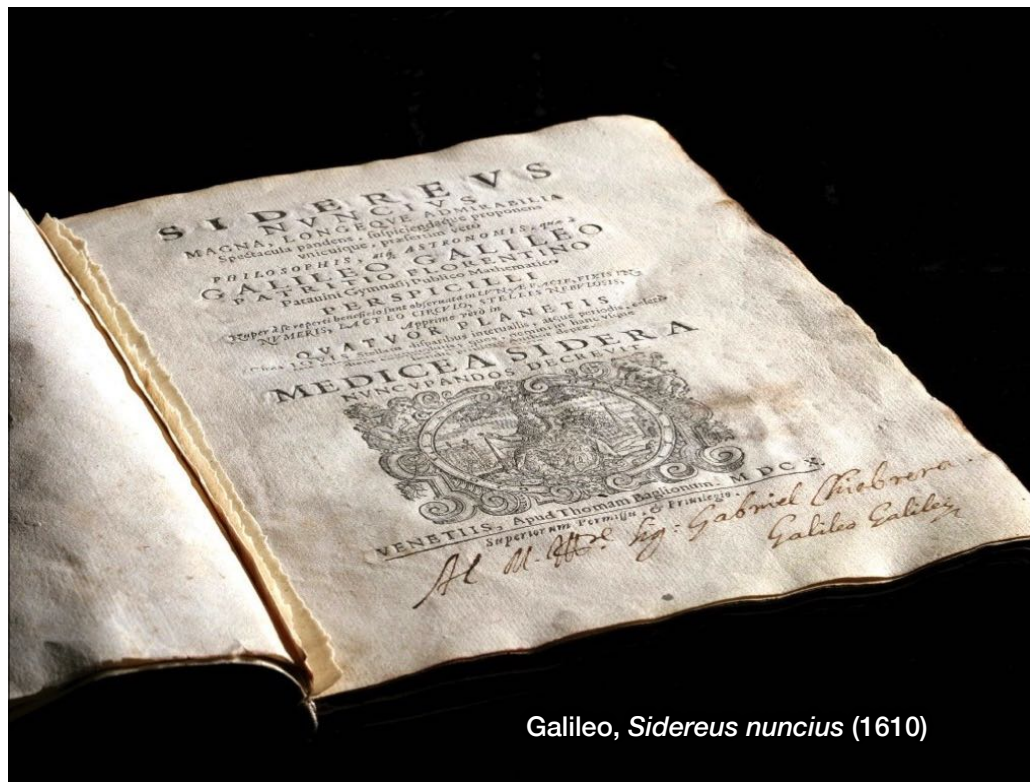 SIDEREVS
NVNCIVS
MAGNA, LONGEQVE ADMIRABILIA
Spectacula pandens, suspiciendaque proponens
vnicuique, præsertim verò
PHILOSOPHIS, atq; ASTRONOMIS, quæ à
GALILEO GALILEO
PATRITIO FLORENTINO
Patauini Gymnasij Publico Mathematico
PERSPICILLI
Nuper à se reperti beneficio sunt obseruata in LVNÆ FACIE, FIXIS IN-
NVMERIS, LACTEO CIRCVLO, STELLIS NEBVLOSIS,
Apprime verò in
QVATVOR PLANETIS
Circa IOVIS Stellam disparibus interuallis, atque periodis, celeri-
nemini in hanc vsque
MEDICEA SIDERA
NVNCVPANDOS DECREVIT
VENETIIS, Apud Thomam Baglionum. MDCX.
Superiorum Permissu, & Privilegio.
Al M. Sig: Gabriel Chiebrera.
Galileo Galilei
Galileo, Sidereus nuncius (1610)